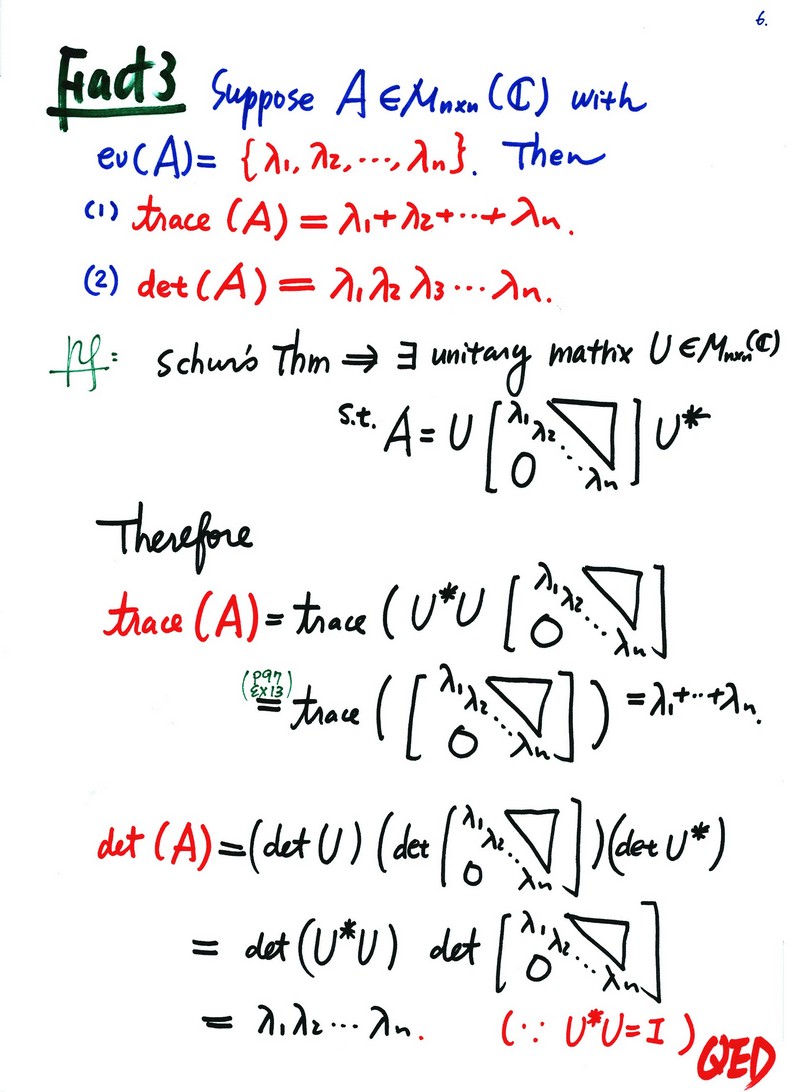 6.
Fact 3 Suppose A ∈ Mₙₓₙ(ℂ) with
ev(A) = {λ₁, λ₂, ⋯, λₙ}. Then
(1) trace (A) = λ₁+λ₂+⋯+λₙ.
(2) det(A) = λ₁λ₂λ₃⋯λₙ.
Pf: Schur's Thm ⇒ ∃ unitary matrix U ∈ Mₙₓₙ(ℂ)
s.t. A = U [λ₁ λ₂ ⋱ λₙ 0] U*
Therefore
trace (A) = trace ( U*U [λ₁ λ₂ ⋱ λₙ 0]
(P97 EX13) = trace ( [λ₁ λ₂ ⋱ λₙ 0] ) = λ₁+⋯+λₙ.
det (A) = (det U) (det [λ₁ λ₂ ⋱ λₙ 0] )(det U*)
= det(U*U) det [λ₁ λ₂ ⋱ λₙ 0]
= λ₁λ₂⋯λₙ. (∵ U*U = I) QED